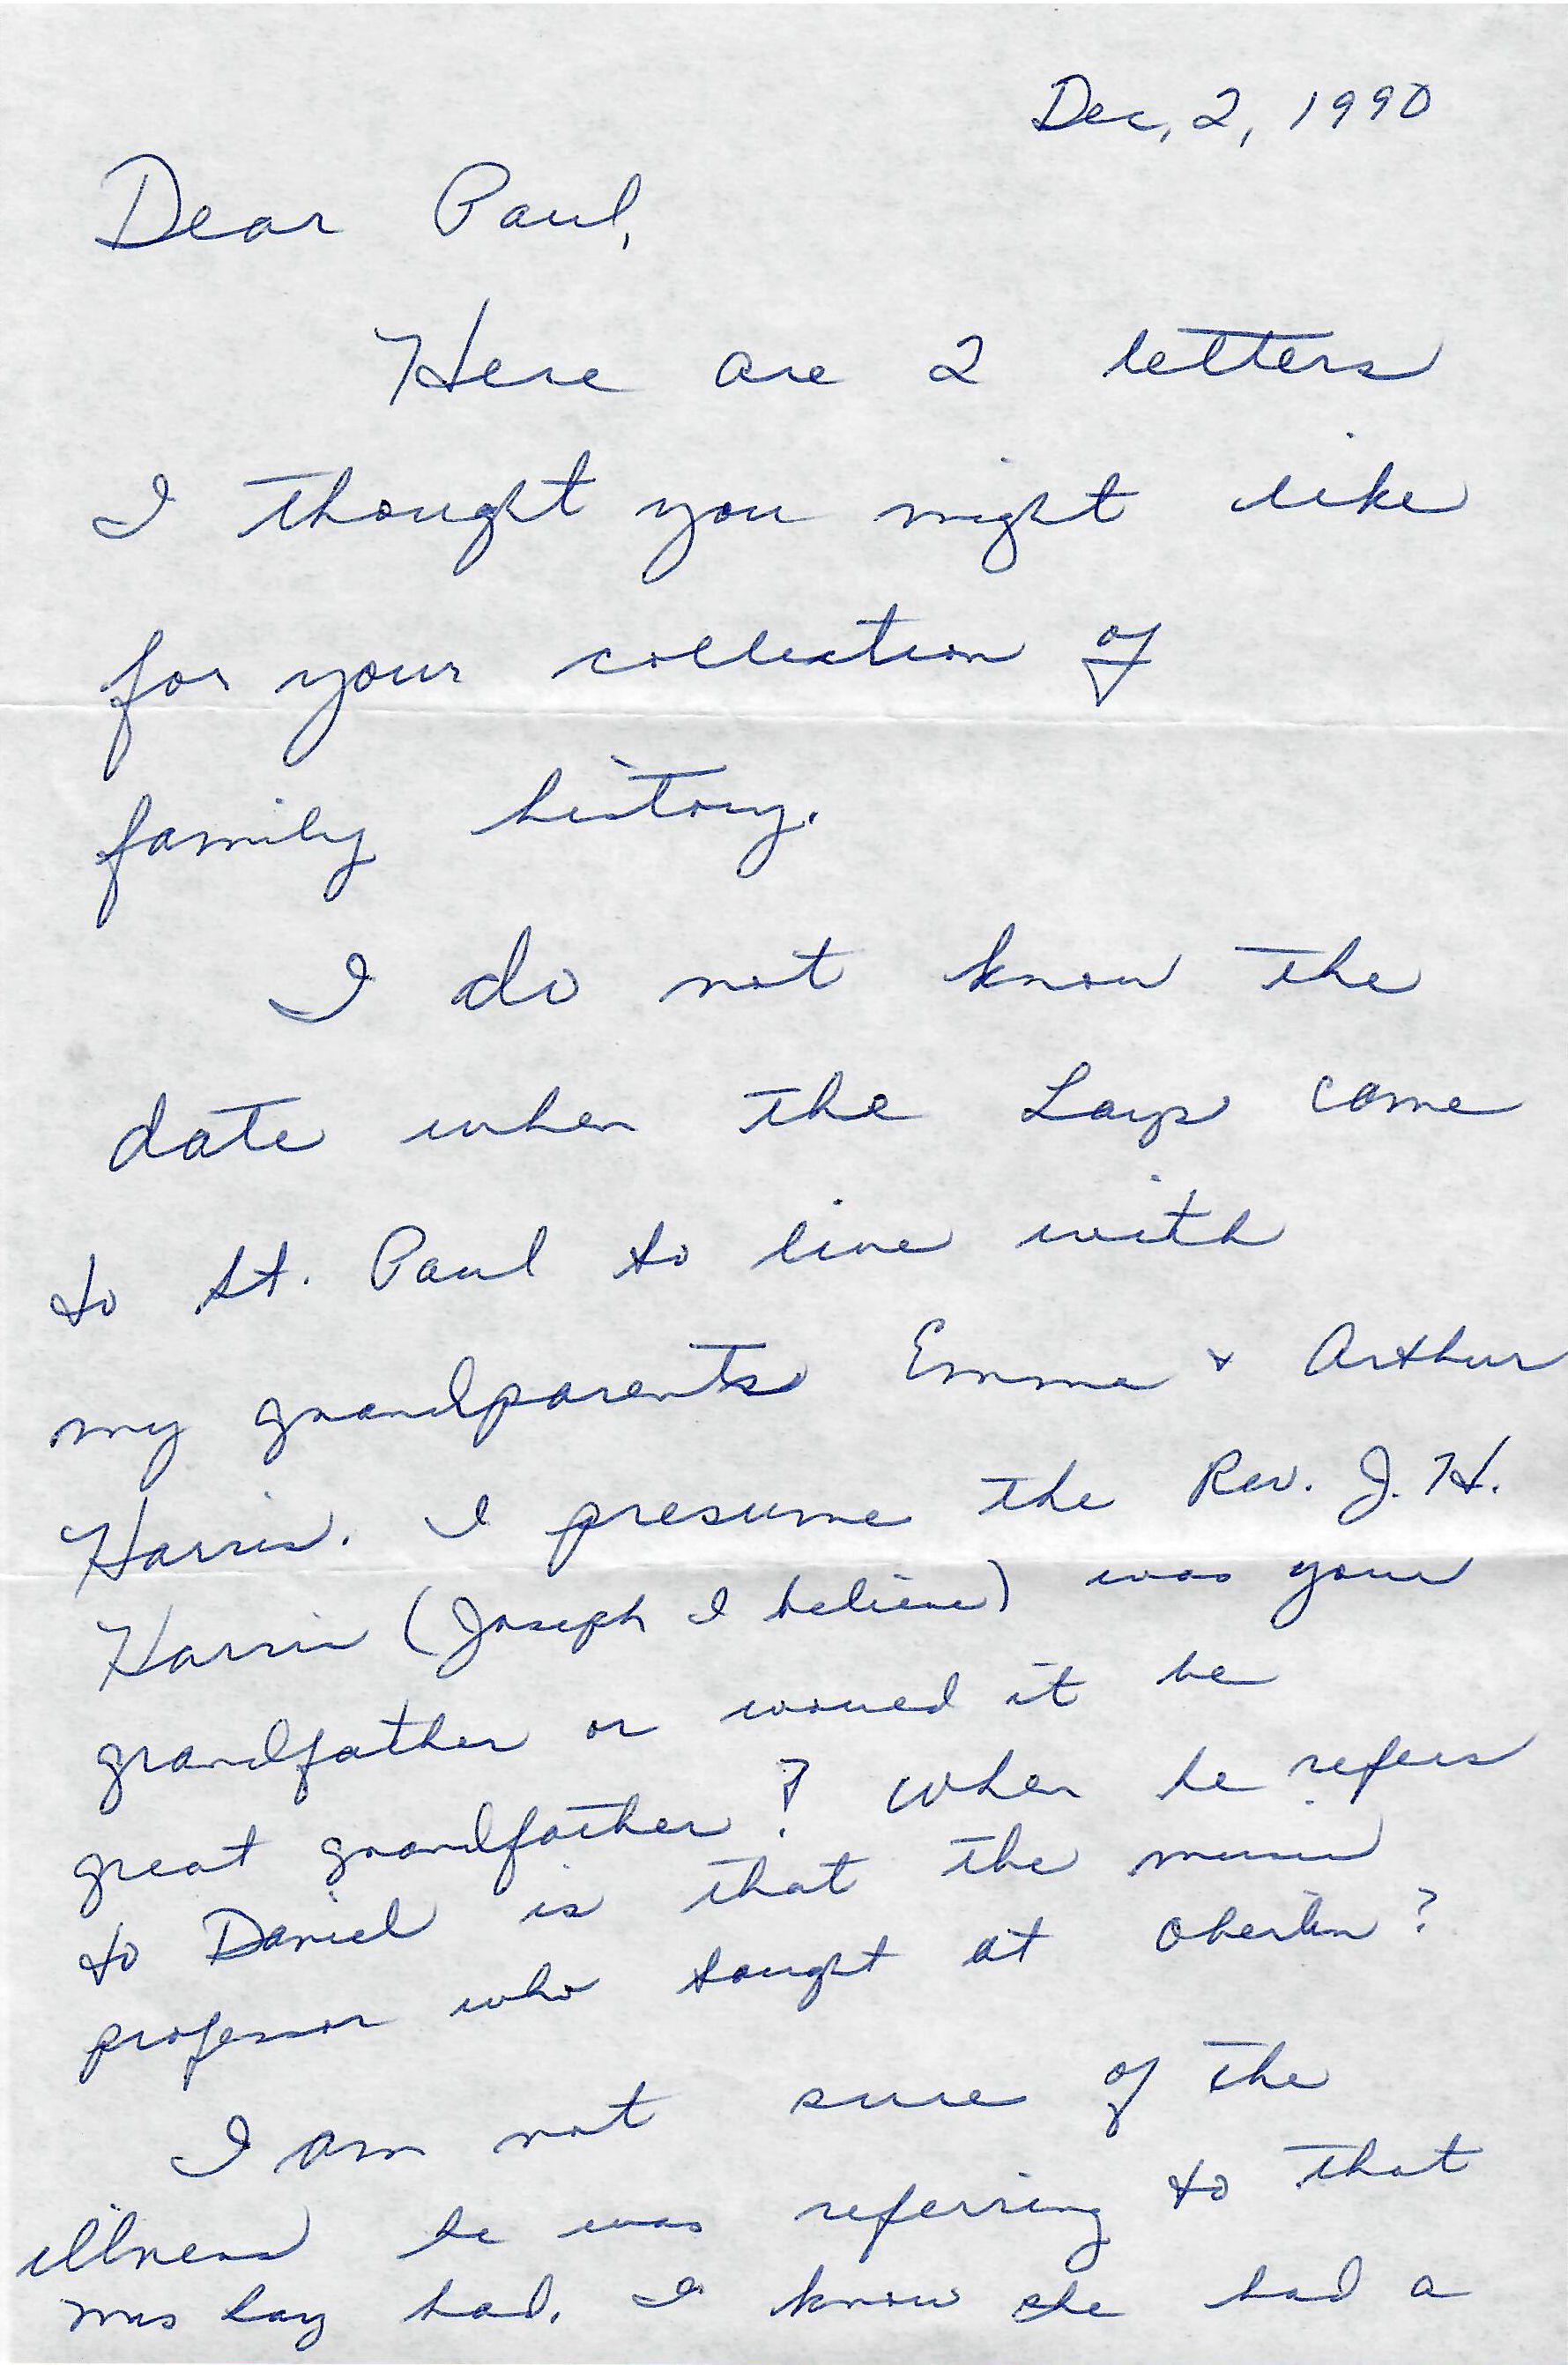 Dec, 2, 1990
Dear Paul,
Here are 2 letters
I thought you might like
for your collection of
family history.
I do not know the
date when the Lays came
to St. Paul to live with
my grandparents Emma + Arthur
Harris. I presume the Rev. J. H.
Harris (Joseph I believe) was your
grandfather or would it be
great grandfather? When he refers
to Daniel is that the music
professor who taught at Oberlin?
I am not sure of the
illness he was referring to that
Mrs Lay had. I know she had a